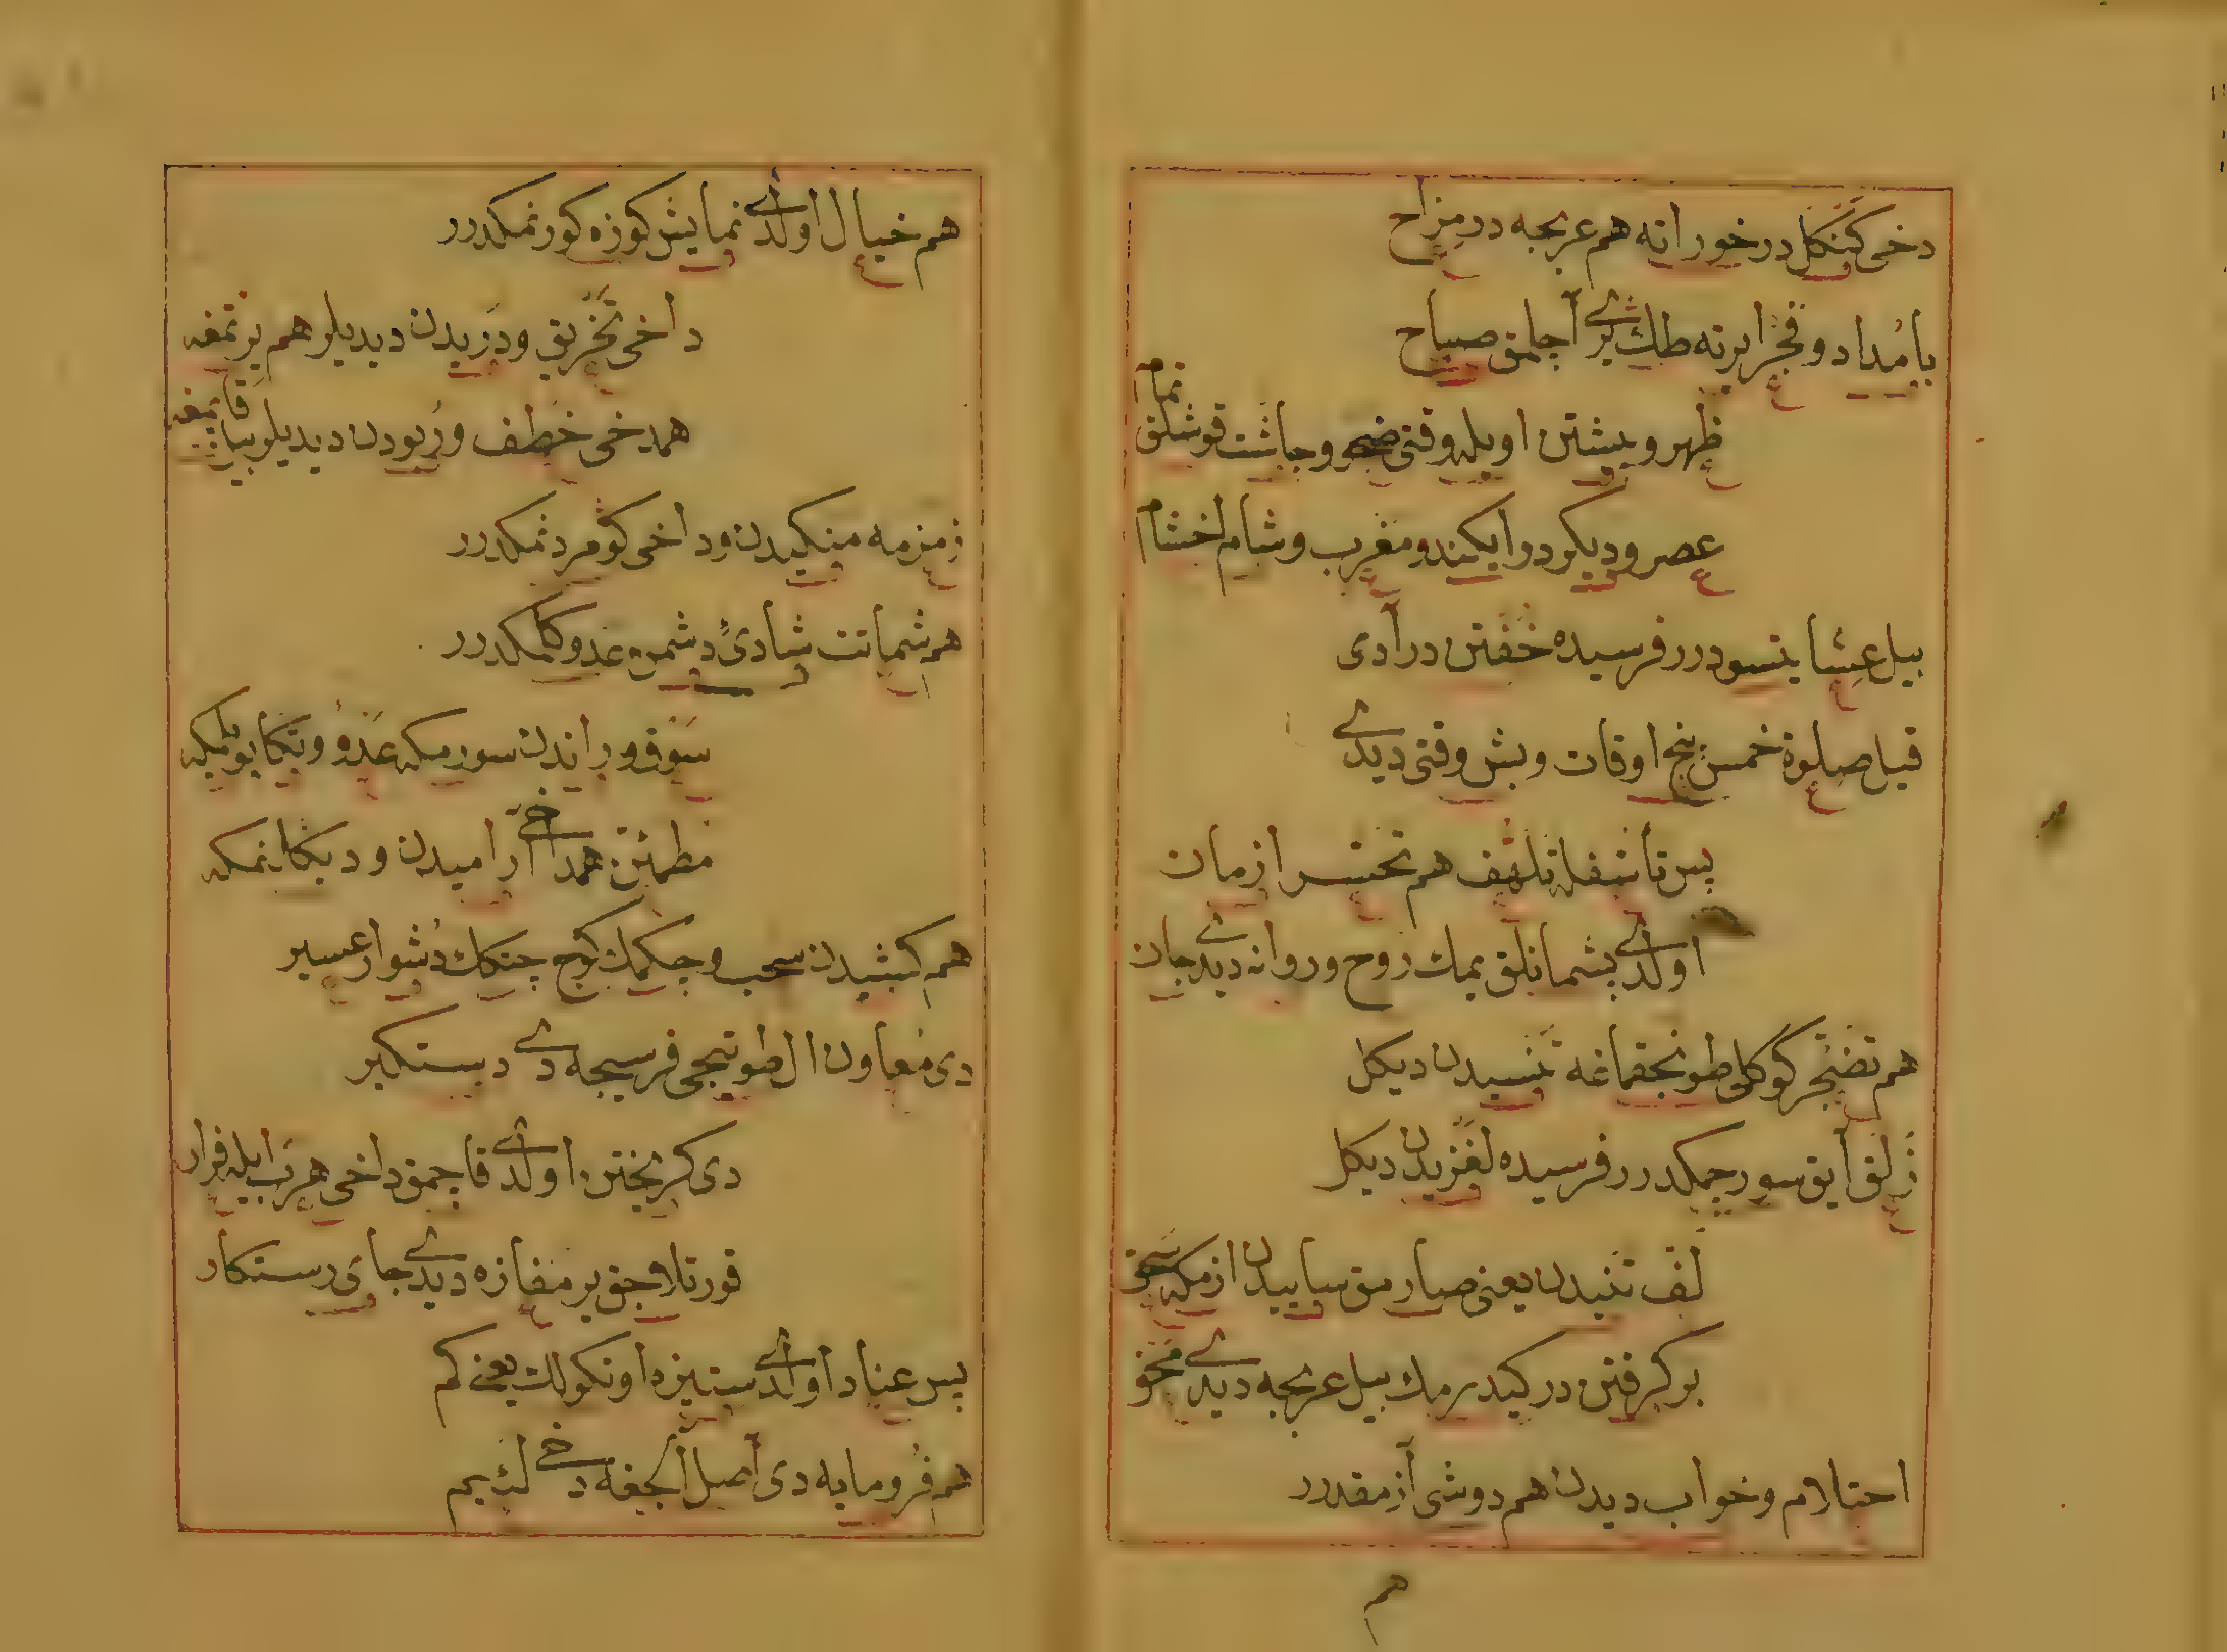 دخی کنکل در خورانه هم عربجه در مزاح
بامداد و فجر ایرته طك یری آچلمق صباح
ظهر و پیشین اویله وقتی ضحی و چاشت قوشلق تمام
عصر و دیکر دوا یکندو مغرب و شام اخشام
بیل عشا یتسودرر فرسیده خفتن در آدی
قیل صلوة خمس پنج اوقات و بش وقتی دیدی
پس تأسفله تلهف هم تحسر ازمان
اولدی پشمانلق یمك روح و روانه دیدی جان
هم تضجر کوکلی طونجقماغه تنسیدن دیکل
زلق ایق سورجمکدرر فرسیده لغزیدن دیکل
لف تنیدن یعنی صارمق ساییدن ازمکه سحق
بر کرفتن در کیدرمك بیل عربجه دیدی محو
احتلام و خواب دیدن هم دوشی آزمقدرر
هم
هم خیال اولدی نمایش کوزه کورنمکدرر
داخی تخریق و دریدن دیدیلر هم یرتمغه
همدخی خطف و ربودن دیدیلر بیل قاپمغه
زمزمه منکیدن و داخی کومردنمکدرر
هم شماتت شادئ دشمن عدو کلمکدرر
سوق و راندن سورمکه عدو و تکاپو یلمکه
مطمئن همداخی آرامیدن و دیکلنمکه
هم کشیدن سحب و چکمك کوج چتك دشوار عسیر
دی معاون ال طوتیجی فرسیجه دی دستکیر
دی کریختن اولدی قاچمق داخی هرب ایله فرار
قورتلاجق یر مفازه دیدی جای رستکار
پس عناد اولدی ستیزه اونکولك یعنی کم
هم فرومایه دی اصل آلجغه دخی لئیم